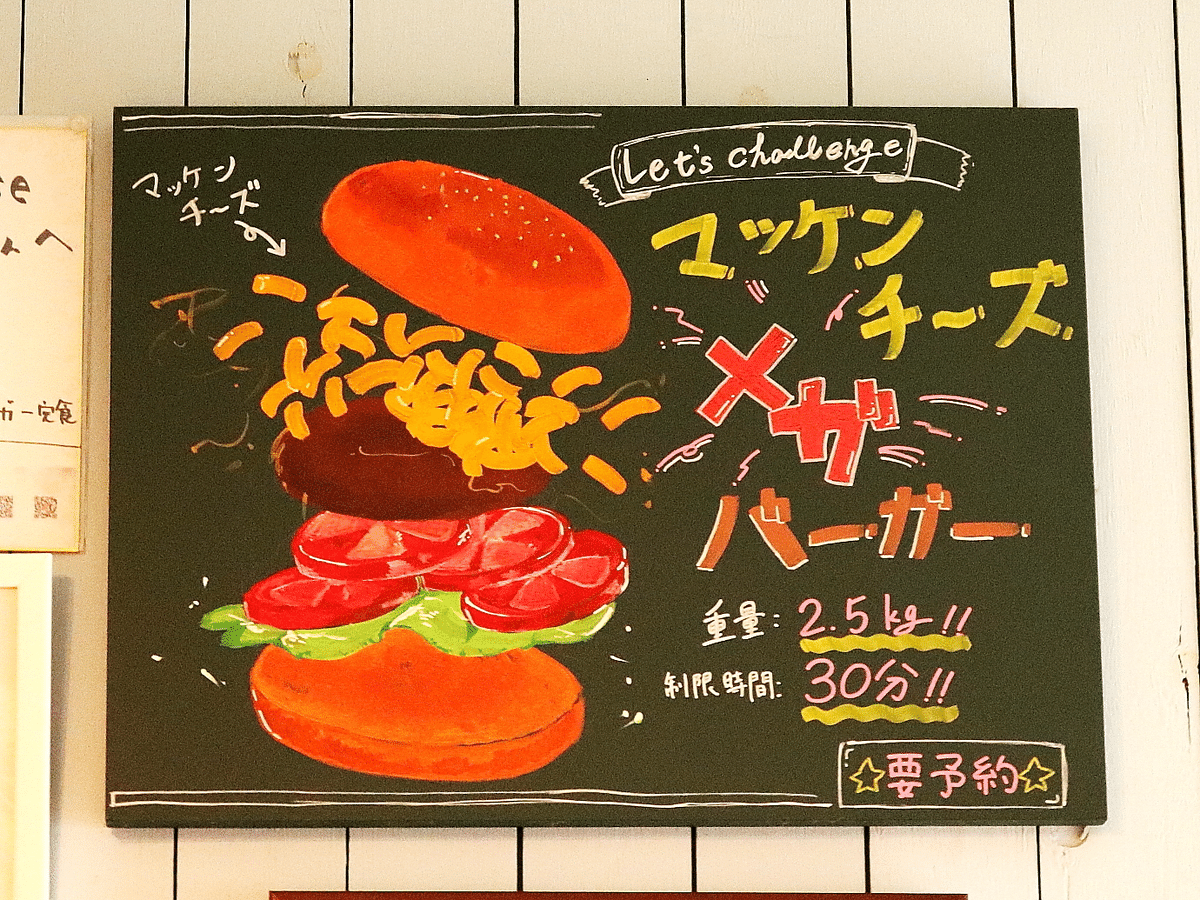 Let's challenge
マッケン
チーズ
マッケン
チ〜ズ
メガ
バーガー
重量: 2.5kg!!
制限時間: 30分!!
☆要予約☆
んへ
ガー定食